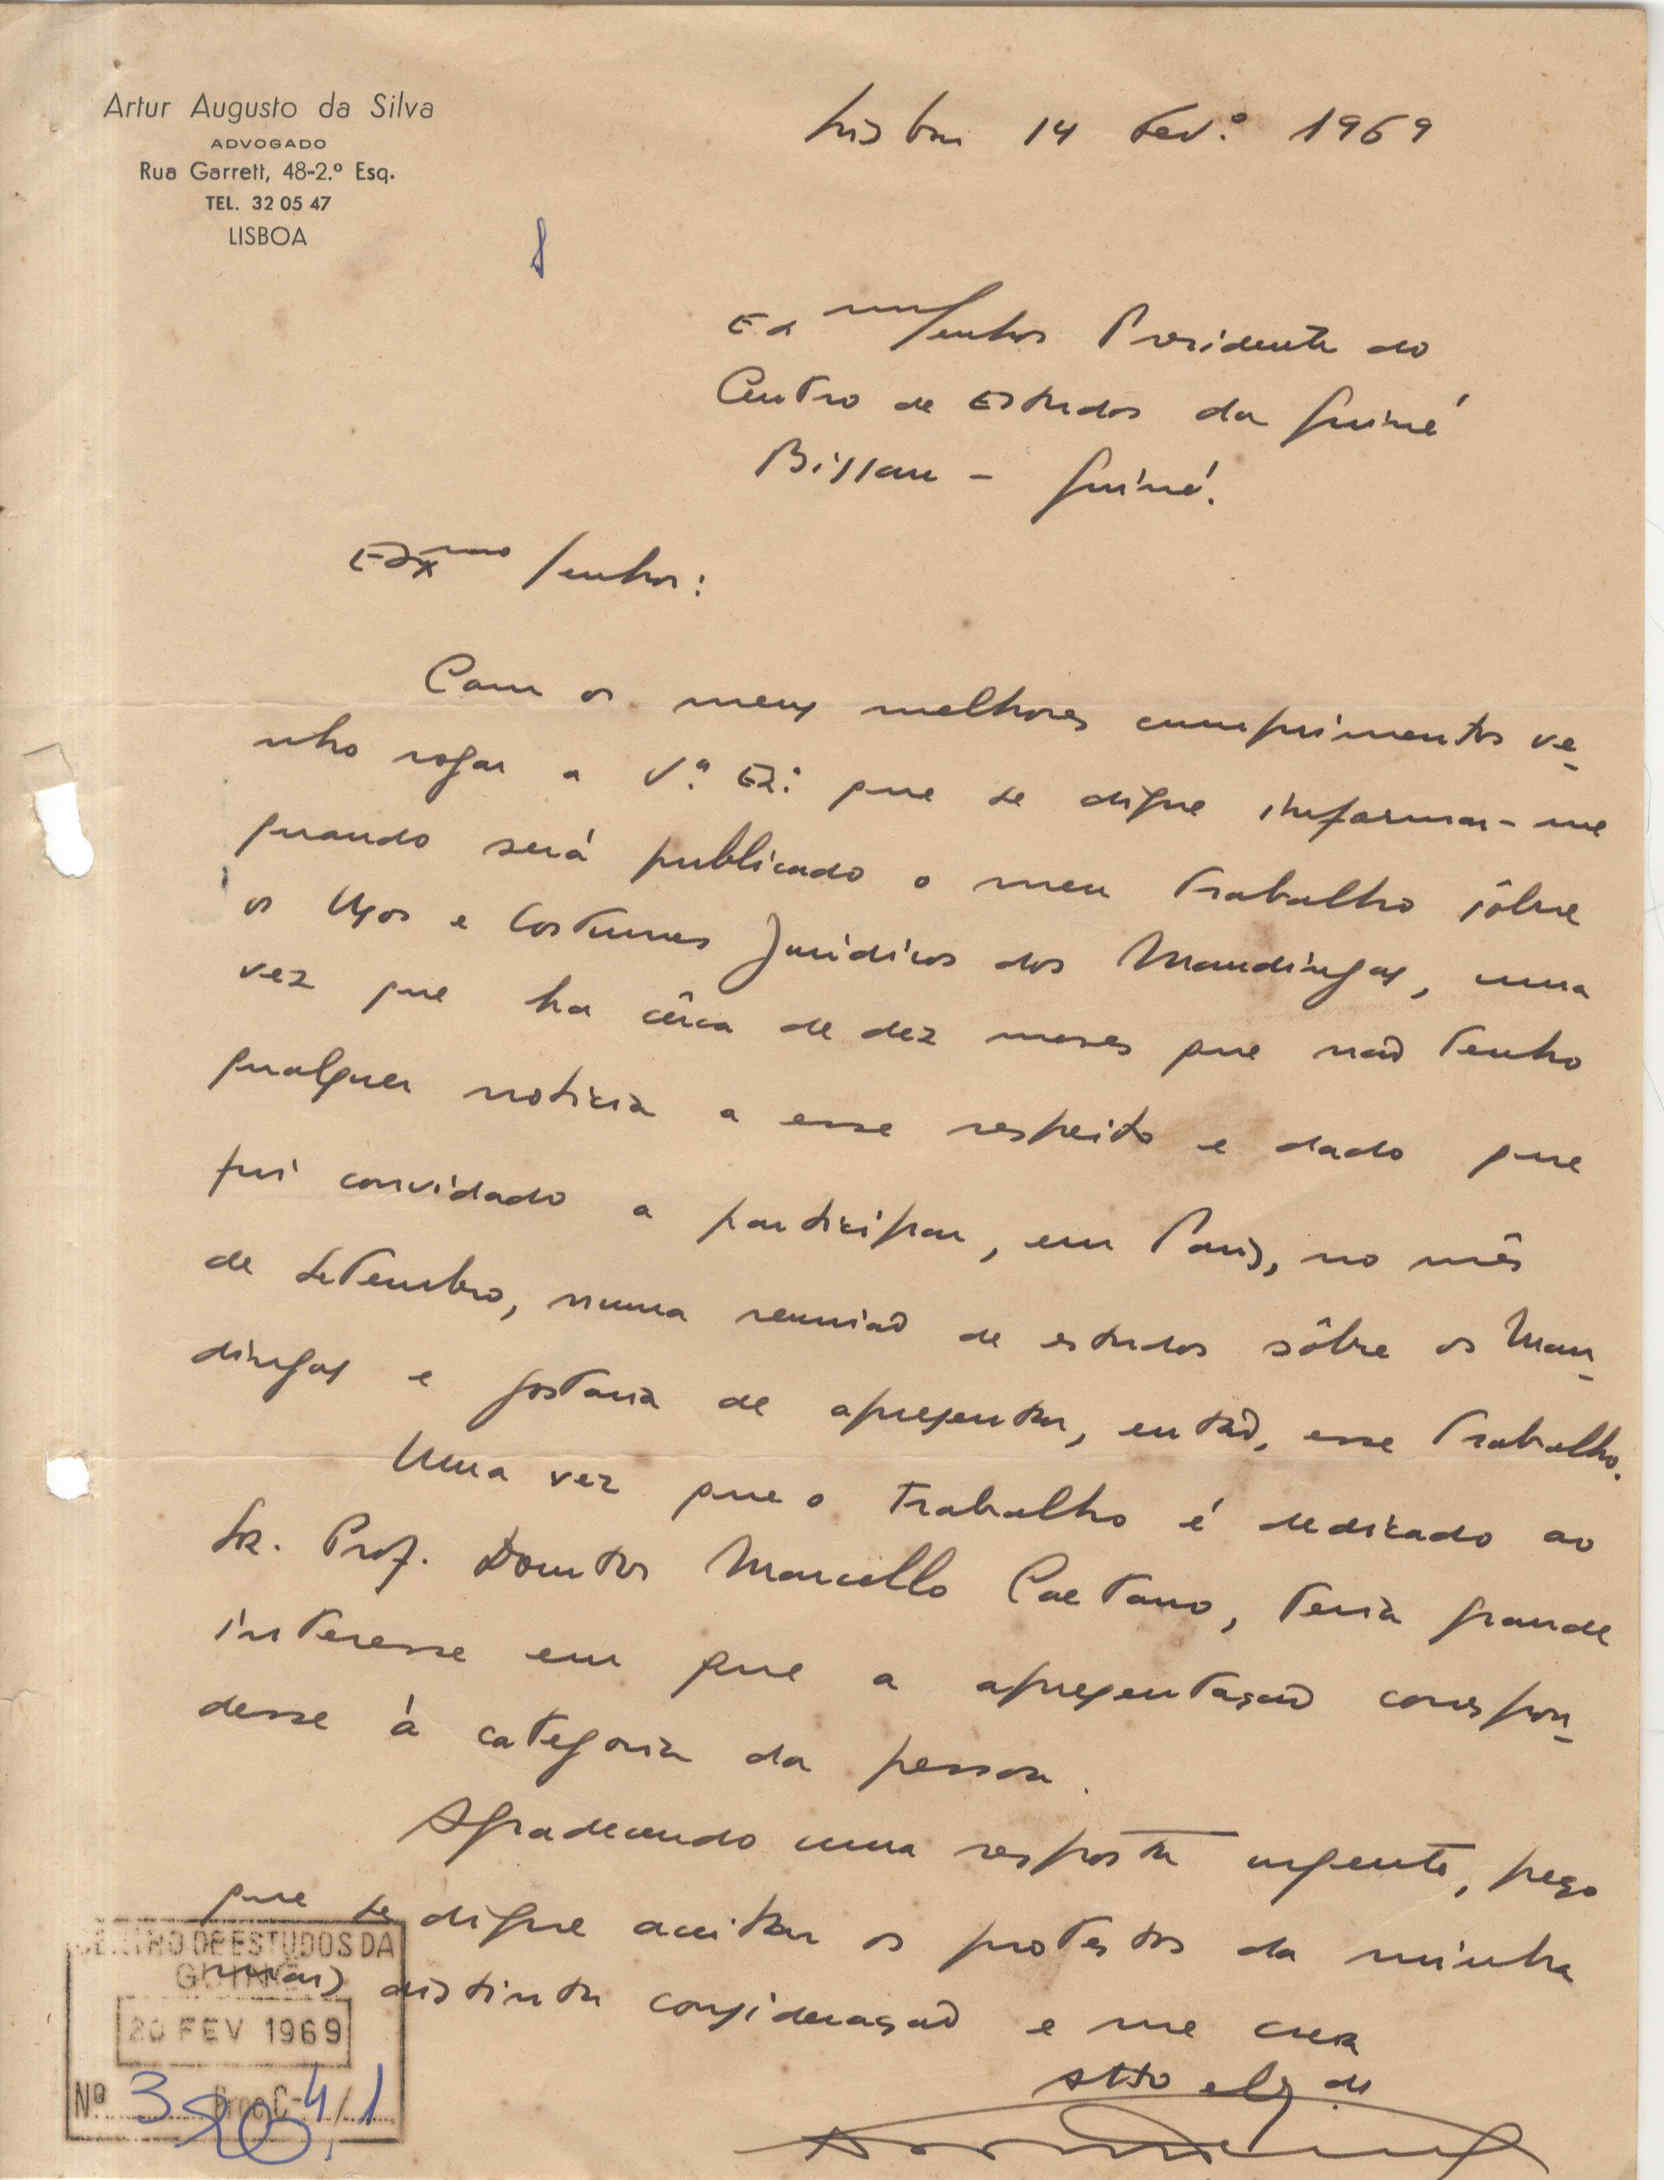 Artur Augusto da Silva
ADVOGADO
Rua Garrett, 48-2.º Esq.
TEL. 32 05 47
LISBOA
Lisboa 14 Fev.º 1969
Exmo Senhor Presidente do
Centro de Estudos da Guiné
Bissau - Guiné.
Exmo Senhor:
Com os meus melhores cumprimentos ve-
nho rogar a V.ª Ex.ª que se digne informar-me
quando será publicado o meu trabalho sôbre
os Usos e Costumes Jurídicos dos Mandingas, uma
vez que ha cêrca de dez meses que não tenho
qualquer noticia a esse respeito e dado que
fui convidado a participar, em Paris, no mês
de Setembro, numa reunião de estudos sôbre os Man-
dingas e gostaria de apresentar, então, esse trabalho.
Uma vez que o trabalho é dedicado ao
Sr. Prof. Doutor Marcello Caetano, teria grande
interesse em que a apresentação corespon-
desse à categoria da pessoa.
Agradecendo uma resposta urgente, peço
que se digne aceitar os protestos da minha
mais distinta consideração e me creia
Atto e
CENTRO DE ESTUDOS DA
GUINÉ
20 FEV 1969
Nº 380 Proc C-4/1